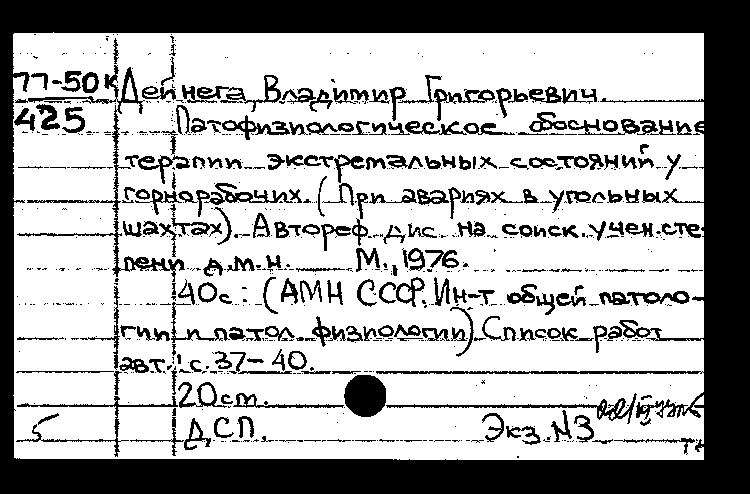 77-50к Дейнега, Владимир Григорьевич.
425 Патофизиологическое обоснование
терапии экстремальных состояний у
горнорабочих. (При авариях в угольных
шахтах). Автореф. дис. на соиск. учен. сте-
пени д.м.н. М., 1976.
40с: (АМН СССР. Ин-т общей патоло-
гии и патол. физиологии) Список работ
авт.: с. 37-40.
20см.
5 ДСП. Экз. №3